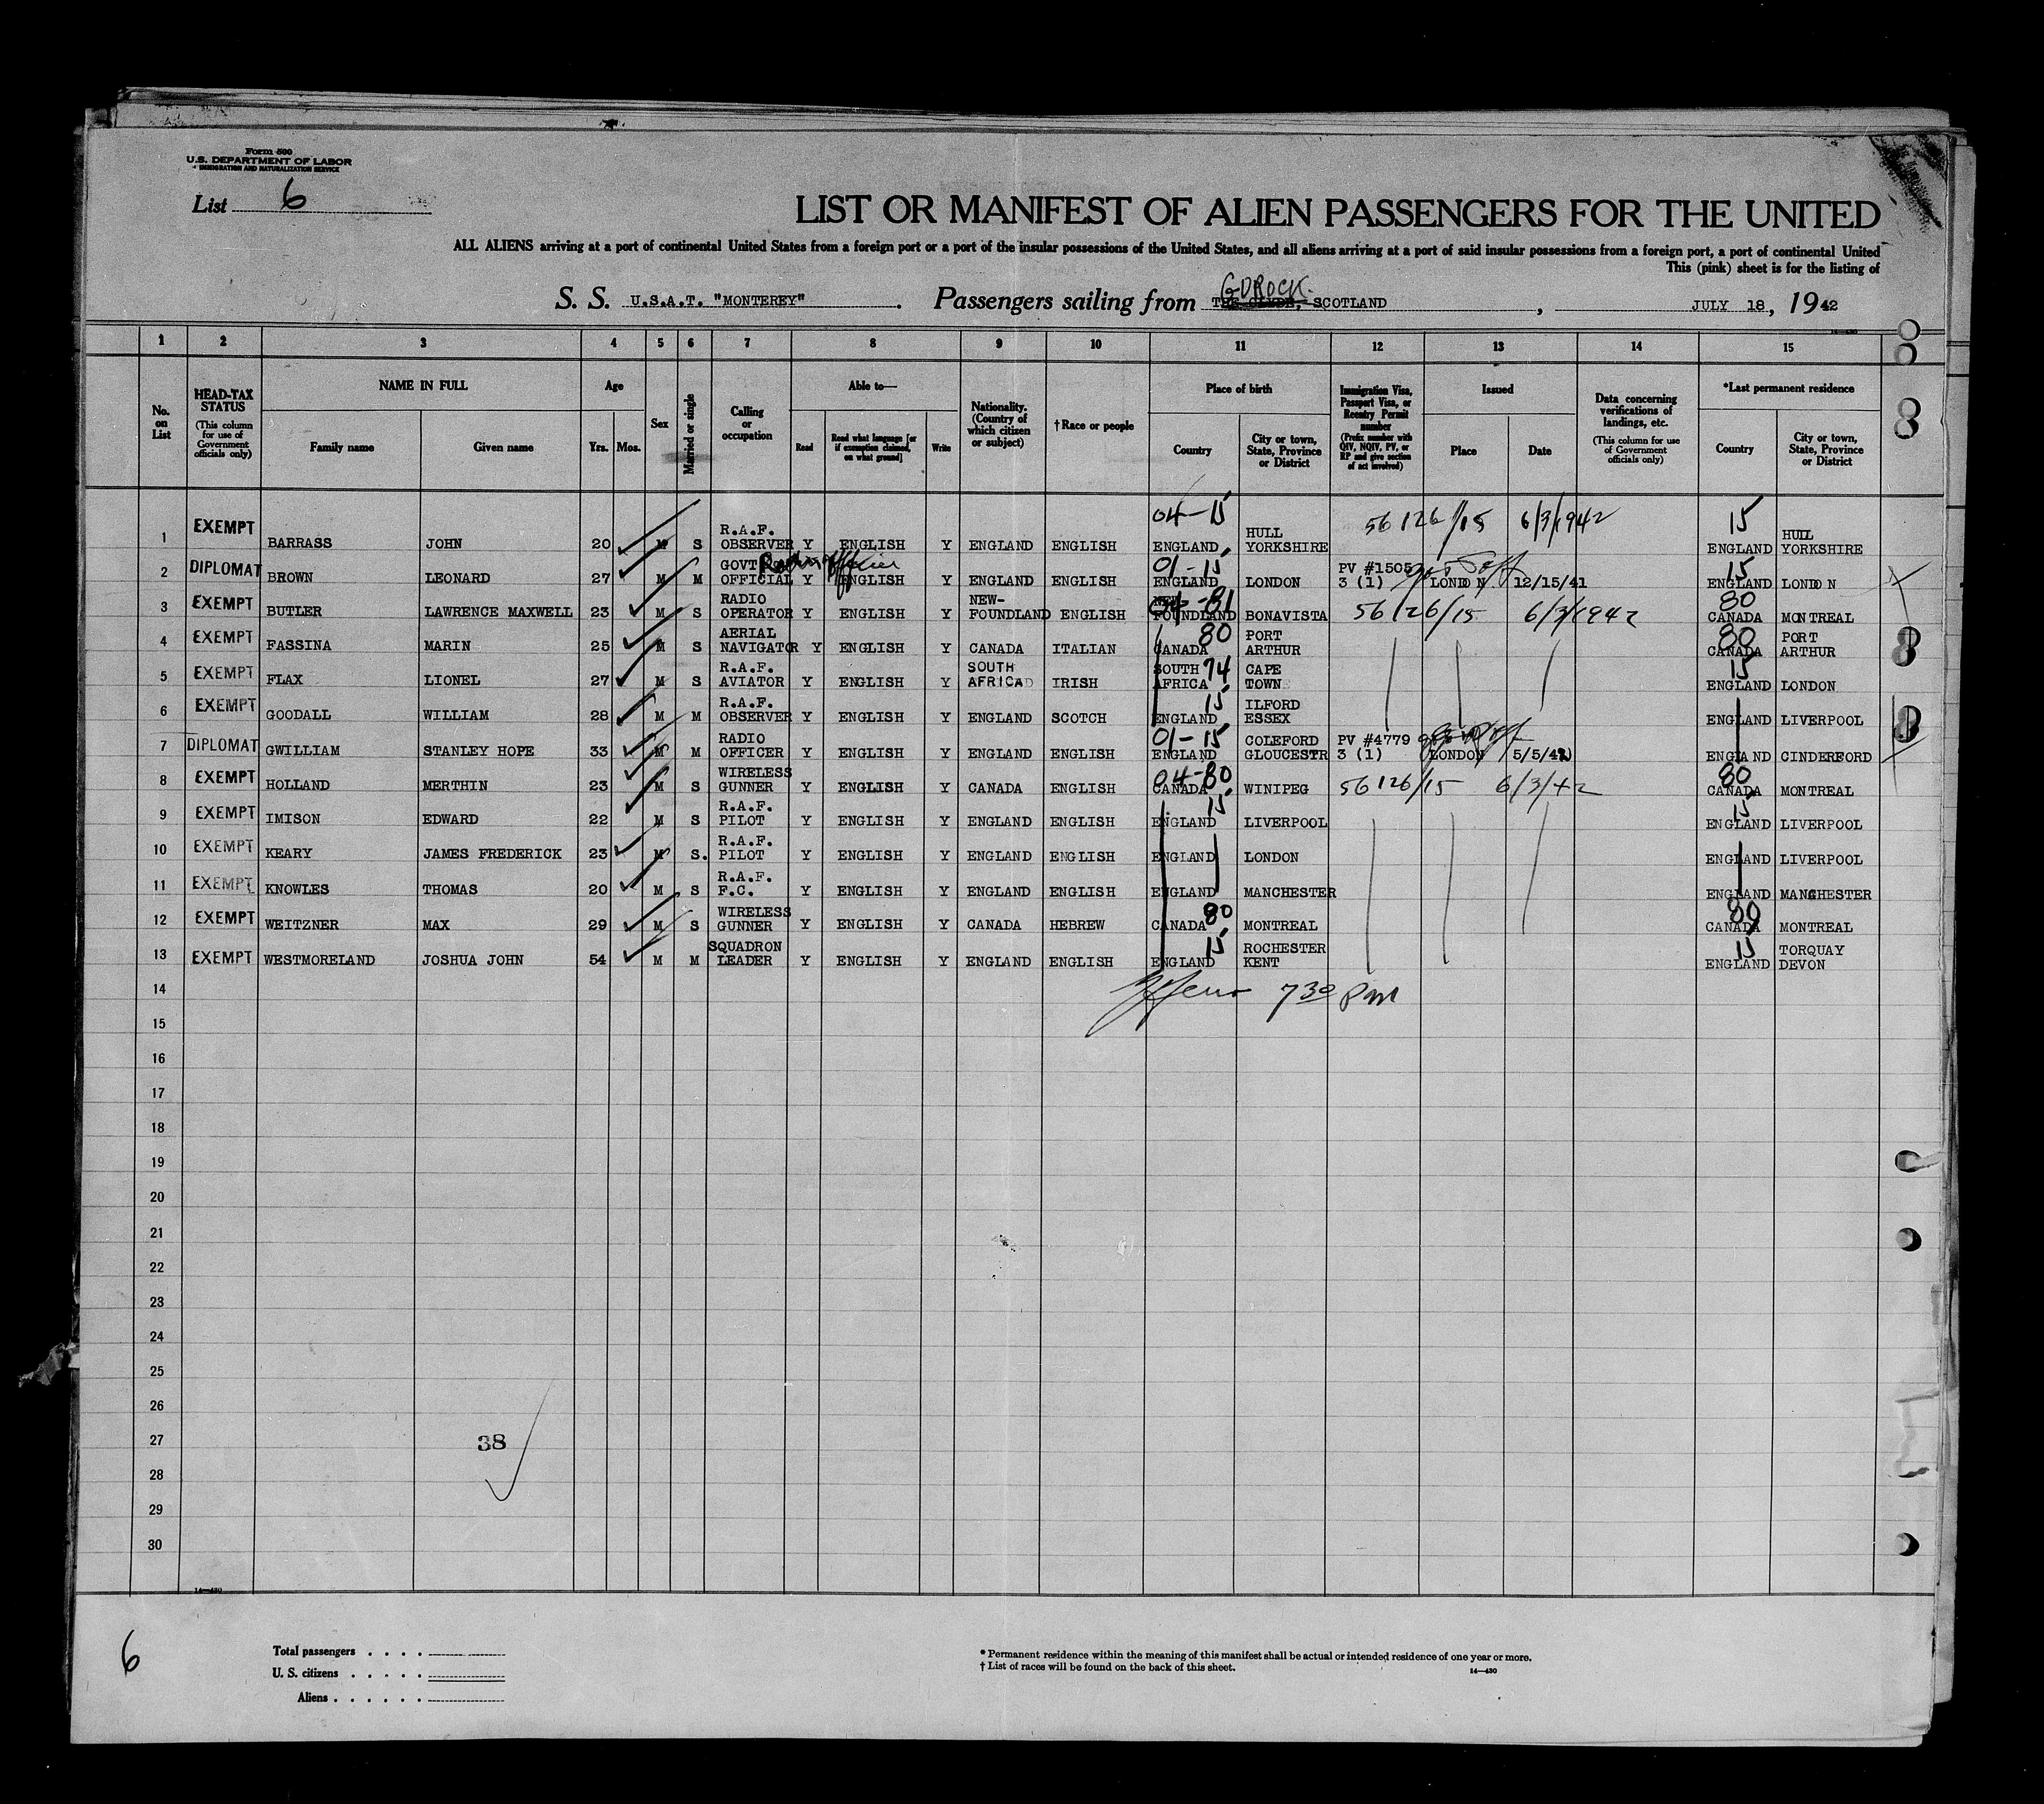 Form 500
U.S. DEPARTMENT OF LABOR
IMMIGRATION AND NATURALIZATION SERVICE
List 6
LIST OR MANIFEST OF ALIEN PASSENGERS FOR THE UNITED
ALL ALIENS arriving at a port of continental United States from a foreign port or a port of the insular possessions of the United States, and all aliens arriving at a port of said insular possessions from a foreign port, a port of continental United
This (pink) sheet is for the listing of
GOROCK.
S. S. U.S.A.T. "MONTEREY". Passengers sailing from THE CLYDE, SCOTLAND, JULY 18, 1942
14-430
1 2 3 4 5 6 7 8 9 10 11 12 13 14 15
No. on List
HEAD-TAX STATUS (This column for use of Government officials only)
NAME IN FULL
Family name Given name
Age
Yrs. Mos.
Sex
Married or single
Calling or occupation
Able to—
Read Read what language [or if exemption claimed, on what ground] Write
Nationality. (Country of which citizen or subject)
†Race or people
Place of birth
Country City or town, State, Province or District
Immigration Visa, Passport Visa, or Reentry Permit number (Prefix number with QIV, NQIV, PV, or RP and give section of act involved)
Issued
Place Date
Data concerning verifications of landings, etc. (This column for use of Government officials only)
*Last permanent residence
Country City or town, State, Province or District
1 EXEMPT BARRASS JOHN 20 M S R.A.F. OBSERVER Y ENGLISH Y ENGLAND ENGLISH 04-15 ENGLAND HULL YORKSHIRE 56126/15 6/3/1942 15 ENGLAND HULL YORKSHIRE
2 DIPLOMAT BROWN LEONARD 27 M M GOVT OFFICIAL Radio officer Y ENGLISH Y ENGLAND ENGLISH 01-15 ENGLAND LONDON PV #15053 3 (1) LONDON 12/15/41 15 ENGLAND LONDON
3 EXEMPT BUTLER LAWRENCE MAXWELL 23 M S RADIO OPERATOR Y ENGLISH Y NEW-FOUNDLAND ENGLISH 04-81 NEW FOUNDLAND BONAVISTA 56126/15 6/3/1942 80 CANADA MONTREAL
4 EXEMPT FASSINA MARIN 25 M S AERIAL NAVIGATOR Y ENGLISH Y CANADA ITALIAN 80 CANADA PORT ARTHUR 80 CANADA PORT ARTHUR
5 EXEMPT FLAX LIONEL 27 M S R.A.F. AVIATOR Y ENGLISH Y SOUTH AFRICA IRISH 74 SOUTH AFRICA CAPE TOWN 15 ENGLAND LONDON
6 EXEMPT GOODALL WILLIAM 28 M M R.A.F. OBSERVER Y ENGLISH Y ENGLAND SCOTCH 15 ENGLAND ILFORD ESSEX ENGLAND LIVERPOOL
7 DIPLOMAT GWILLIAM STANLEY HOPE 33 M M RADIO OFFICER Y ENGLISH Y ENGLAND ENGLISH 01-15 ENGLAND COLEFORD GLOUCESTR PV #4779 3 (1) LONDON 5/5/42 ENGLAND CINDERFORD
8 EXEMPT HOLLAND MERTHIN 23 M S WIRELESS GUNNER Y ENGLISH Y CANADA ENGLISH 04-80 CANADA WINIPEG 56126/15 6/3/42 80 CANADA MONTREAL
9 EXEMPT IMISON EDWARD 22 M S R.A.F. PILOT Y ENGLISH Y ENGLAND ENGLISH 15 ENGLAND LIVERPOOL 15 ENGLAND LIVERPOOL
10 EXEMPT KEARY JAMES FREDERICK 23 M S. R.A.F. PILOT Y ENGLISH Y ENGLAND ENGLISH ENGLAND LONDON ENGLAND LIVERPOOL
11 EXEMPT KNOWLES THOMAS 20 M S R.A.F. F.C. Y ENGLISH Y ENGLAND ENGLISH ENGLAND MANCHESTER ENGLAND MANCHESTER
12 EXEMPT WEITZNER MAX 29 M S WIRELESS GUNNER Y ENGLISH Y CANADA HEBREW 80 CANADA MONTREAL 80 CANADA MONTREAL
13 EXEMPT WESTMORELAND JOSHUA JOHN 54 M M SQUADRON LEADER Y ENGLISH Y ENGLAND ENGLISH 15 ENGLAND ROCHESTER KENT 15 ENGLAND TORQUAY DEVON
14 7 30 PM
15
16
17
18
19
20
21
22
23
24
25
26
27 38
28
29
30
14-430
6
Total passengers . . . .
U. S. citizens . . . . .
Aliens . . . . . .
* Permanent residence within the meaning of this manifest shall be actual or intended residence of one year or more.
† List of races will be found on the back of this sheet. 14-430